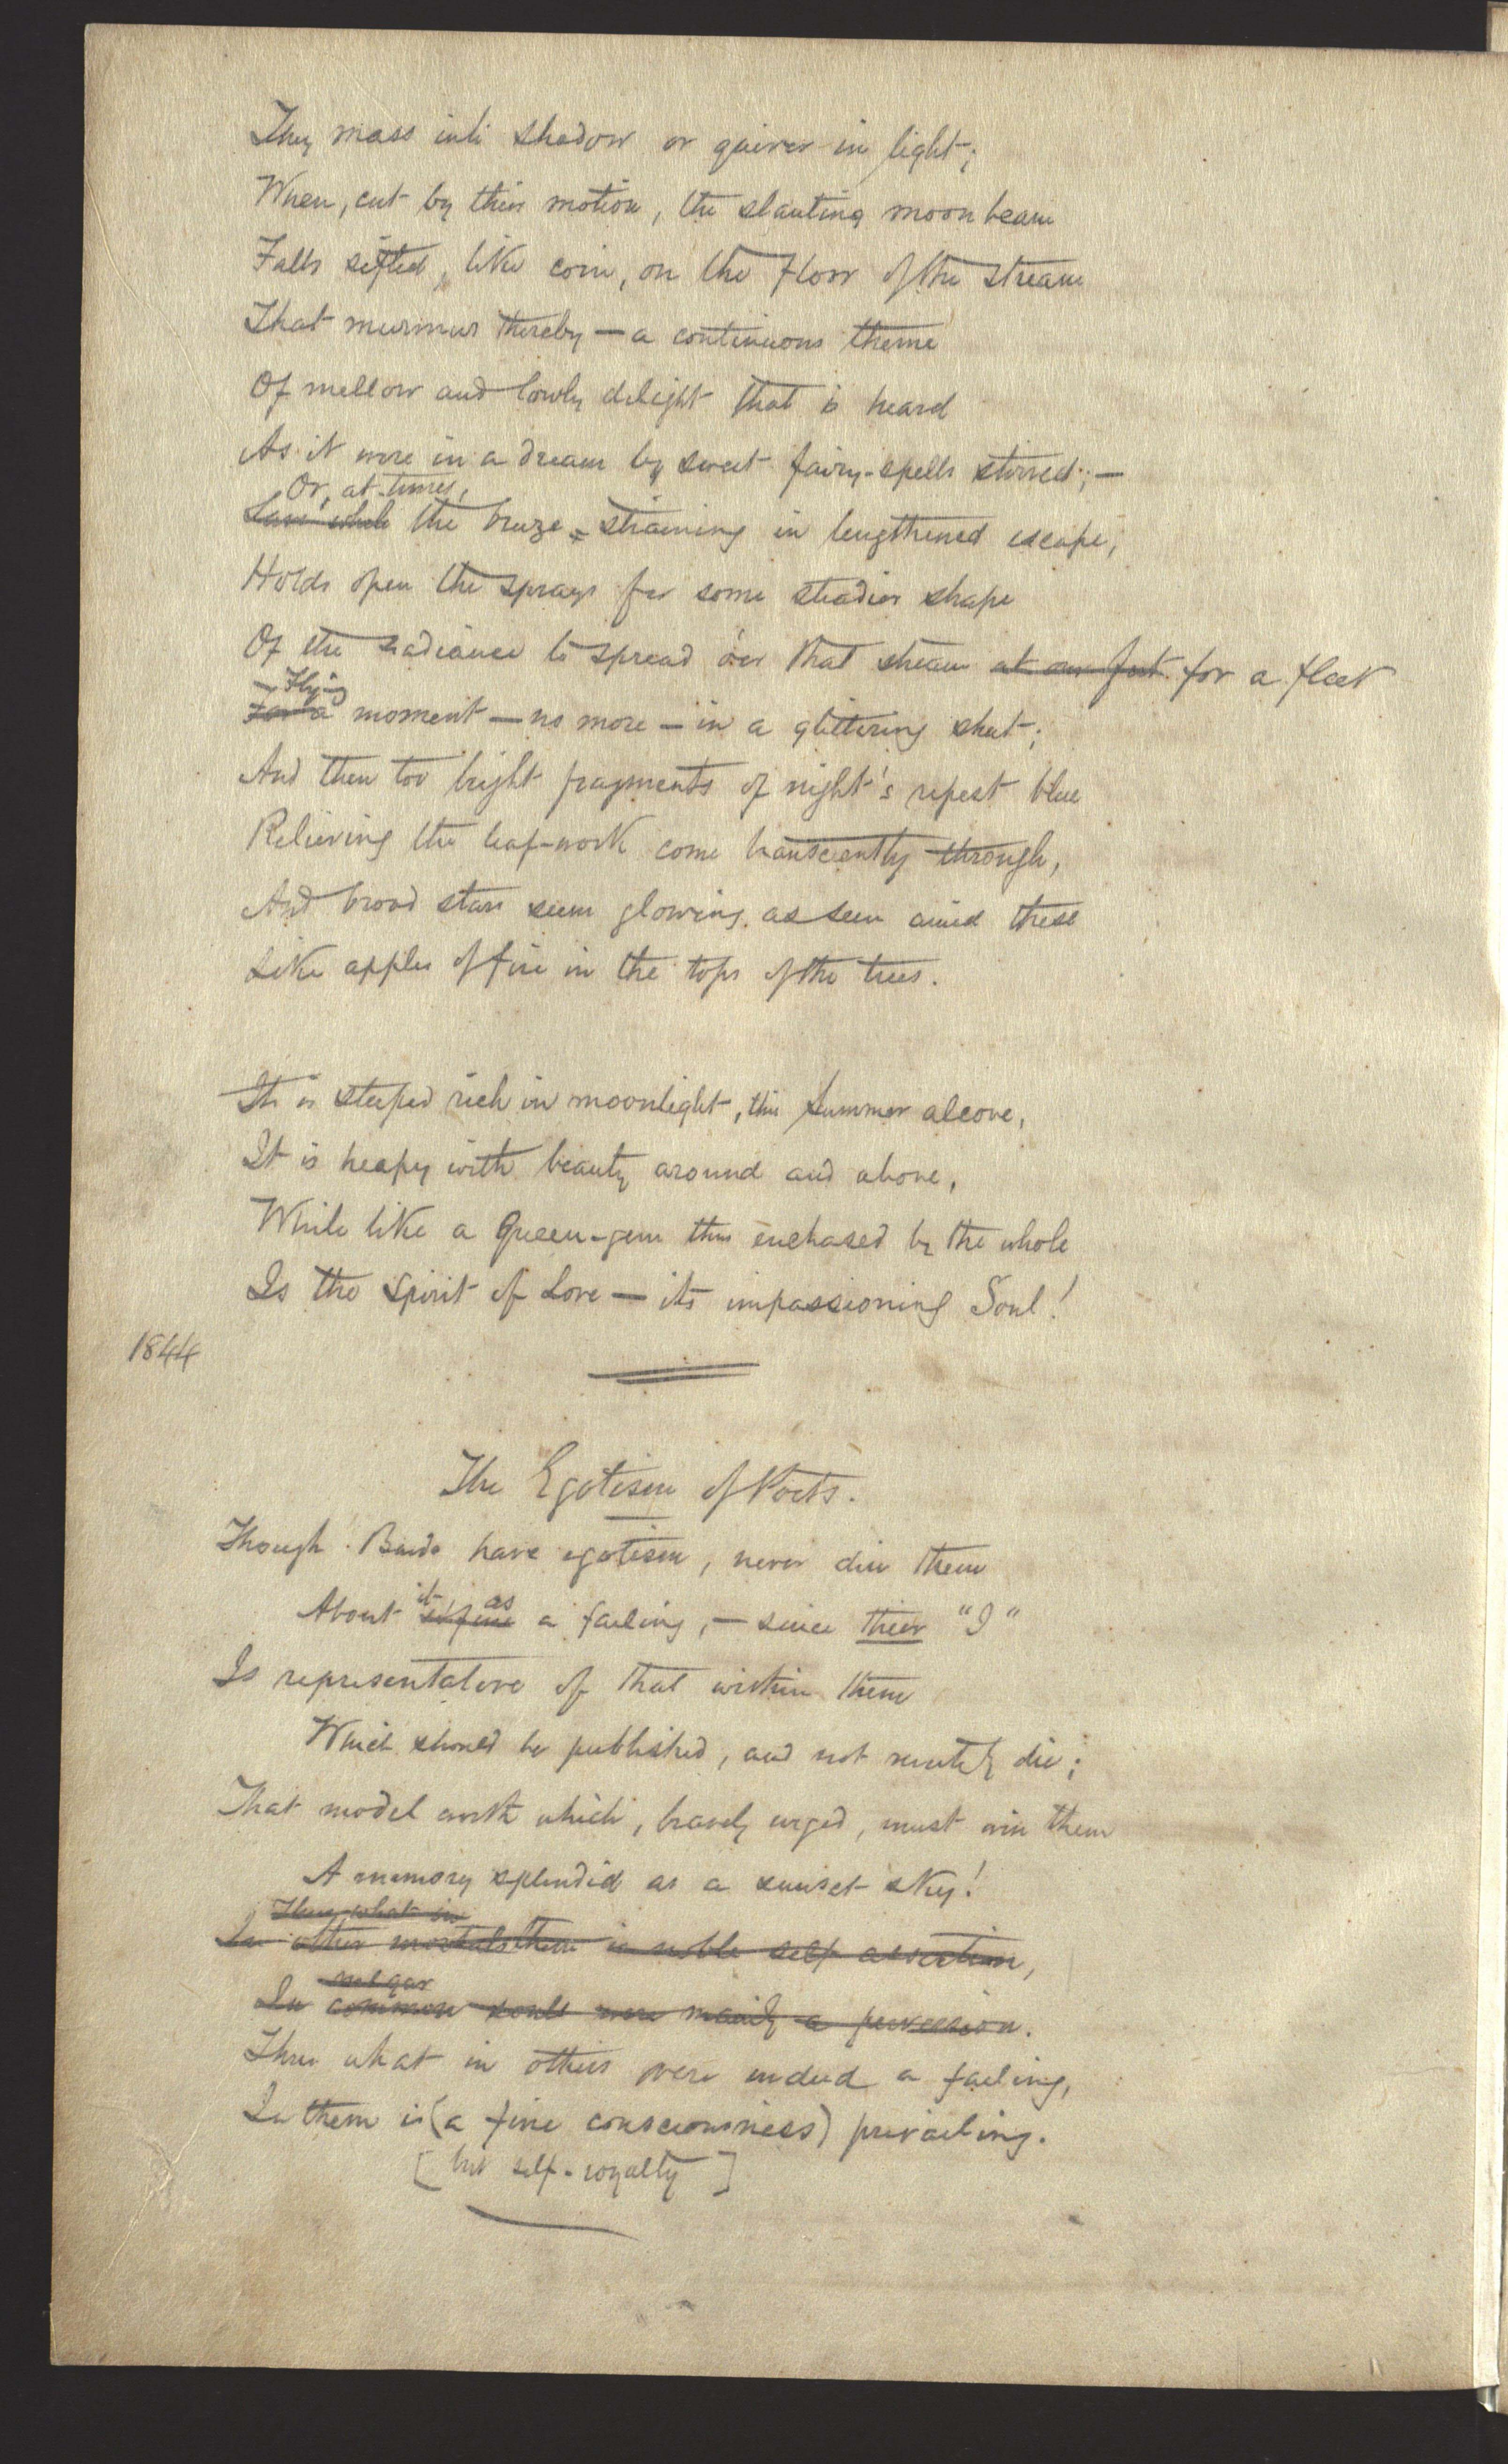 They mass into shadow or quiver in light;
When, cut by their motion, the slanting moonbeam
Falls sifted, like coin, on the flow of the stream
That murmurs thereby — a continuous theme
Of mellow and lowly delight that is heard
As it were in a dream by sweet fairy-spells stirred; —
Or, at times,
Save while the breeze, straining in lengthened escape,
Holds open the sprays for some steadier shape
Of the radiance to spread o'er that stream at our feet for a fleet
Flying
For a moment — no more — in a glittering sheet;
And then too bright fragments of night's ripest blue
Relieving the leaf-work come transciently through,
And broad stars seem glowing, as seen amid these
Like apples of fire in the tops of the trees.
It is steeped rich in moonlight, this Summer alcove,
It is heapy with beauty around and above,
While like a Queen-gem thus enchased by the whole
Is the Spirit of Love — its impassioning Soul!
1844
The Egotism of Poets.
Though Bards have egotism, never din them
it as
About a failing, — since their "I"
Is representative of that within them
Which should be published, and not mutely die;
That model worth which, bravely urged, must win them
A memory splendid as a sunset sky!
Thus what in
In other mortals there is noble self assertion,
vulgar
In common souls were mainly a perversion.
Thus what in others were indeed a failing,
In them is (a fine consciousness) prevailing.
[but self-royalty]